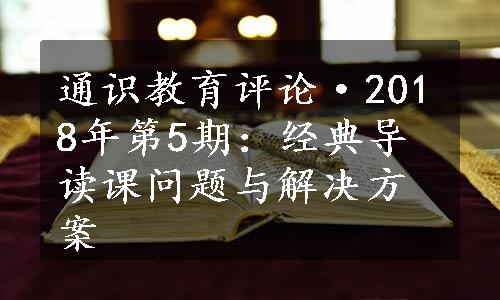 通识教育评论·201
8年第5期：经典导
读课问题与解决方
案